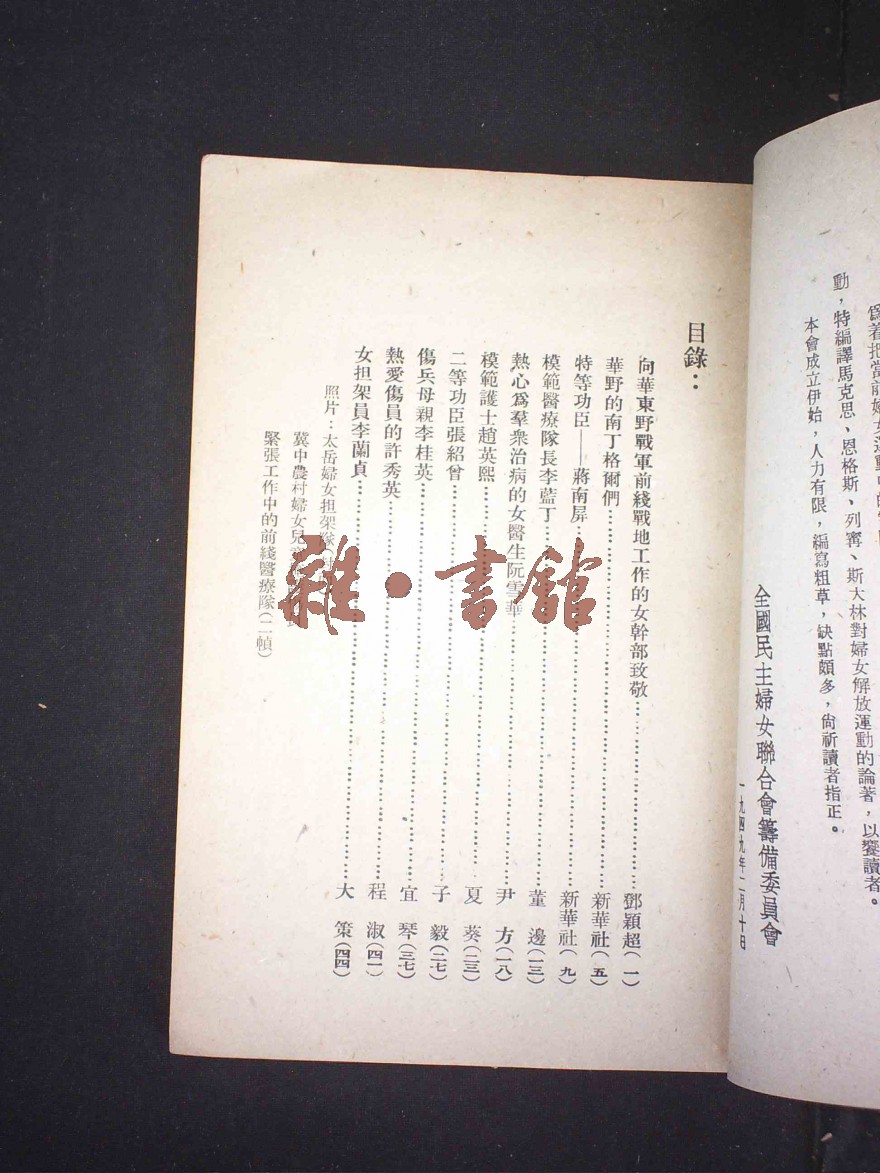 動，特編譯馬克思、恩格斯、列寗、斯大林對婦女解放運動的論著，以饗讀者。
本會成立伊始，人力有限，編寫粗草，缺點頗多，尙祈讀者指正。
全國民主婦女聯合會籌備委員會
一九四九年二月十日
目錄：
向華東野戰軍前綫戰地工作的女幹部致敬……鄧穎超(一)
華野的南丁格爾們……新華社(五)
特等功臣——蔣南屏……新華社(九)
模範醫療隊長李藍丁……董邊(一三)
熱心爲羣衆治病的女醫生阮雪華……尹方(一八)
模範護士趙英熙……夏葵(二三)
二等功臣張紹曾……子毅(二七)
傷兵母親李桂英……宜琴(三七)
熱愛傷員的許秀英……程淑(四一)
女担架員李蘭貞……大策(四四)
照片：太岳婦女担架隊
冀中農村婦女兒
緊張工作中的前綫醫療隊(二幀)
雜·書館